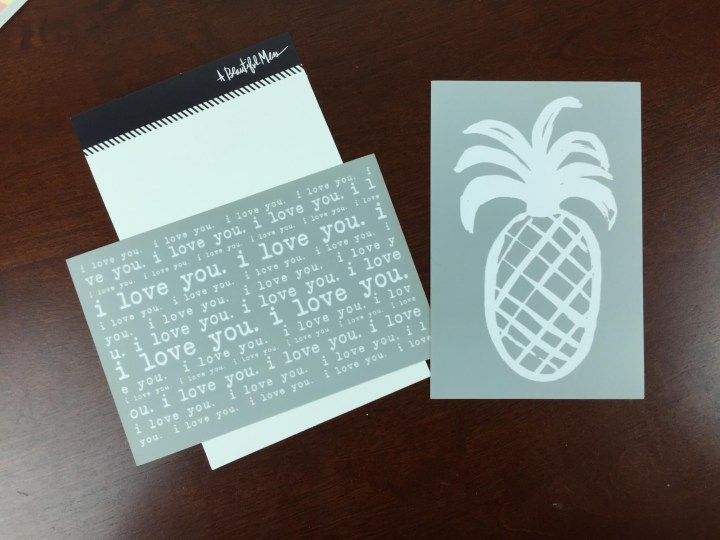 A Beautiful Mess
i love you. i love you. i love you. i
ve you. i love you. i love you. i l
i love you. i love you. i love you. i love you. i love you.
i love you. i love you. i
i love you. i love you. i love you. i
u. i love you. i love you. i love y
i love you. i love you.
e you. i love you. i love you. i lov
i love you. i love you. i love you. i love you. i love
ou. i love you. i love you. i love
i love you. i love you. i love you. i l
you. i love you. i love you. i love